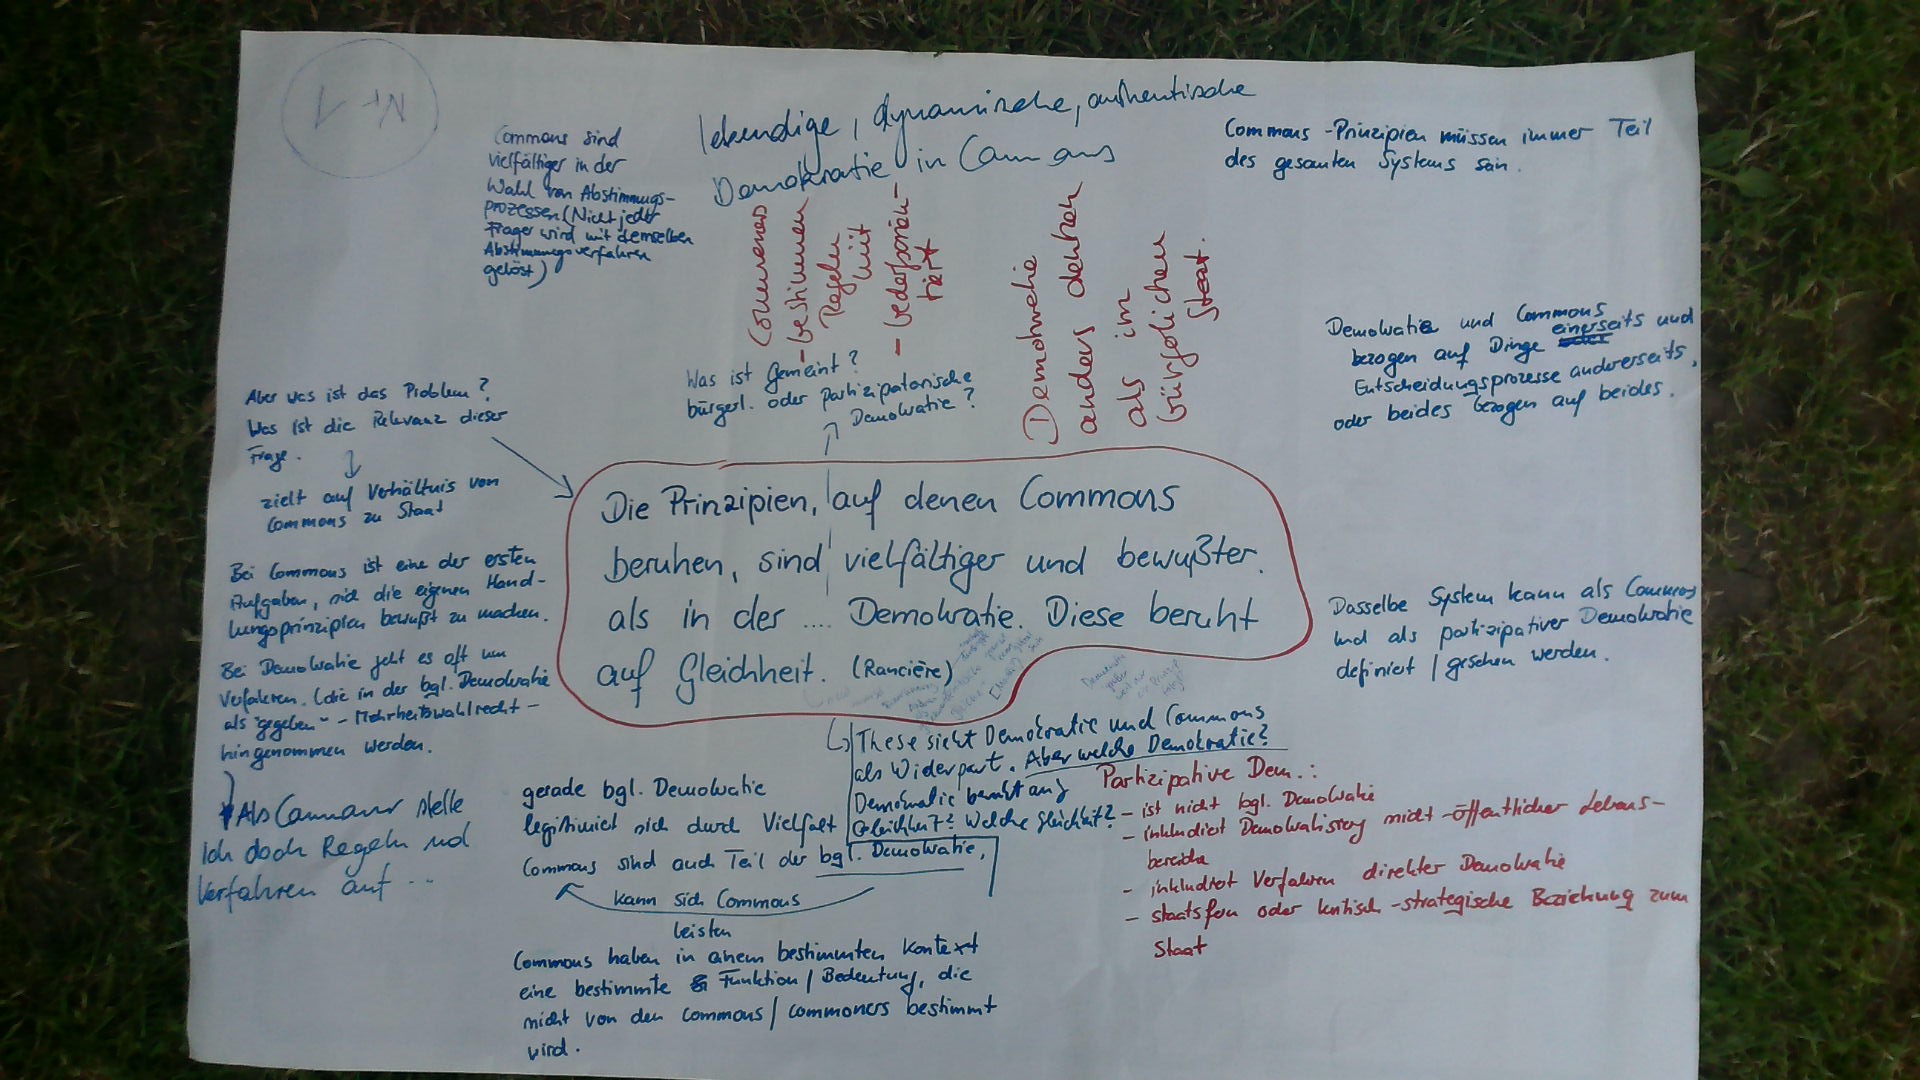 Nr 1
Commons sind
vielfältiger in der
Wahl von Abstimmungs-
prozessen (Nicht jede
Frage wird mit demselben
Abstimmungsverfahren
gelöst)
lebendige, dynamische, authentische
Demokratie in Commons
Commons-Prinzipien müssen immer Teil
des gesamten Systems sein.
Commoners
- bestimmen
Regeln
mit
- bedürfnisorien-
tiert
Demokratie
anders denken
als im
bürgerlichen
Staat.
Demokratie und Commons
bezogen auf Dinge einerseits und
Entscheidungsprozesse andererseits,
oder beides bezogen auf beides.
Was ist gemeint?
bürgerl. oder partizipatorische
Demokratie?
Aber was ist das Problem?
Was ist die Relevanz dieser
Frage.
zielt auf Verhältnis von
Commons zu Staat
Die Prinzipien, auf denen Commons
beruhen, sind vielfältiger und bewußter.
als in der .... Demokratie. Diese beruht
auf Gleichheit. (Rancière)
Bei Commons ist eine der ersten
Aufgaben, sich die eigenen Hand-
lungsprinzipien bewußt zu machen.
Bei Demokratie geht es oft um
Verfahren. (die in der bgl. Demokratie
als "gegeben" - Mehrheitswahlrecht -
hingenommen werden.
Als Commoner stelle
Ich doch Regeln und
Verfahren auf ...
Dasselbe System kann als Commons
und als partizipativer Demokratie
definiert / gesehen werden.
These sieht Demokratie und Commons
als Widerpart. Aber welche Demokratie?
Demokratie beruht auf
Gleichheit? Welche Gleichheit?
gerade bgl. Demokratie
legitimiert sich durch Vielfalt
Commons sind auch Teil der bgl. Demokratie,
kann sich Commons
leisten
Commons haben in einem bestimmten Kontext
eine bestimmte Funktion / Bedeutung, die
nicht von den commons / commoners bestimmt
wird.
Partizipative Dem.:
- ist nicht bgl. Demokratie
- inkludiert Demokratisierg nicht-öffentlicher Lebens-
bereiche
- inkludiert Verfahren direkter Demokratie
- staatsfern oder kritisch-strategische Beziehung zum
Staat